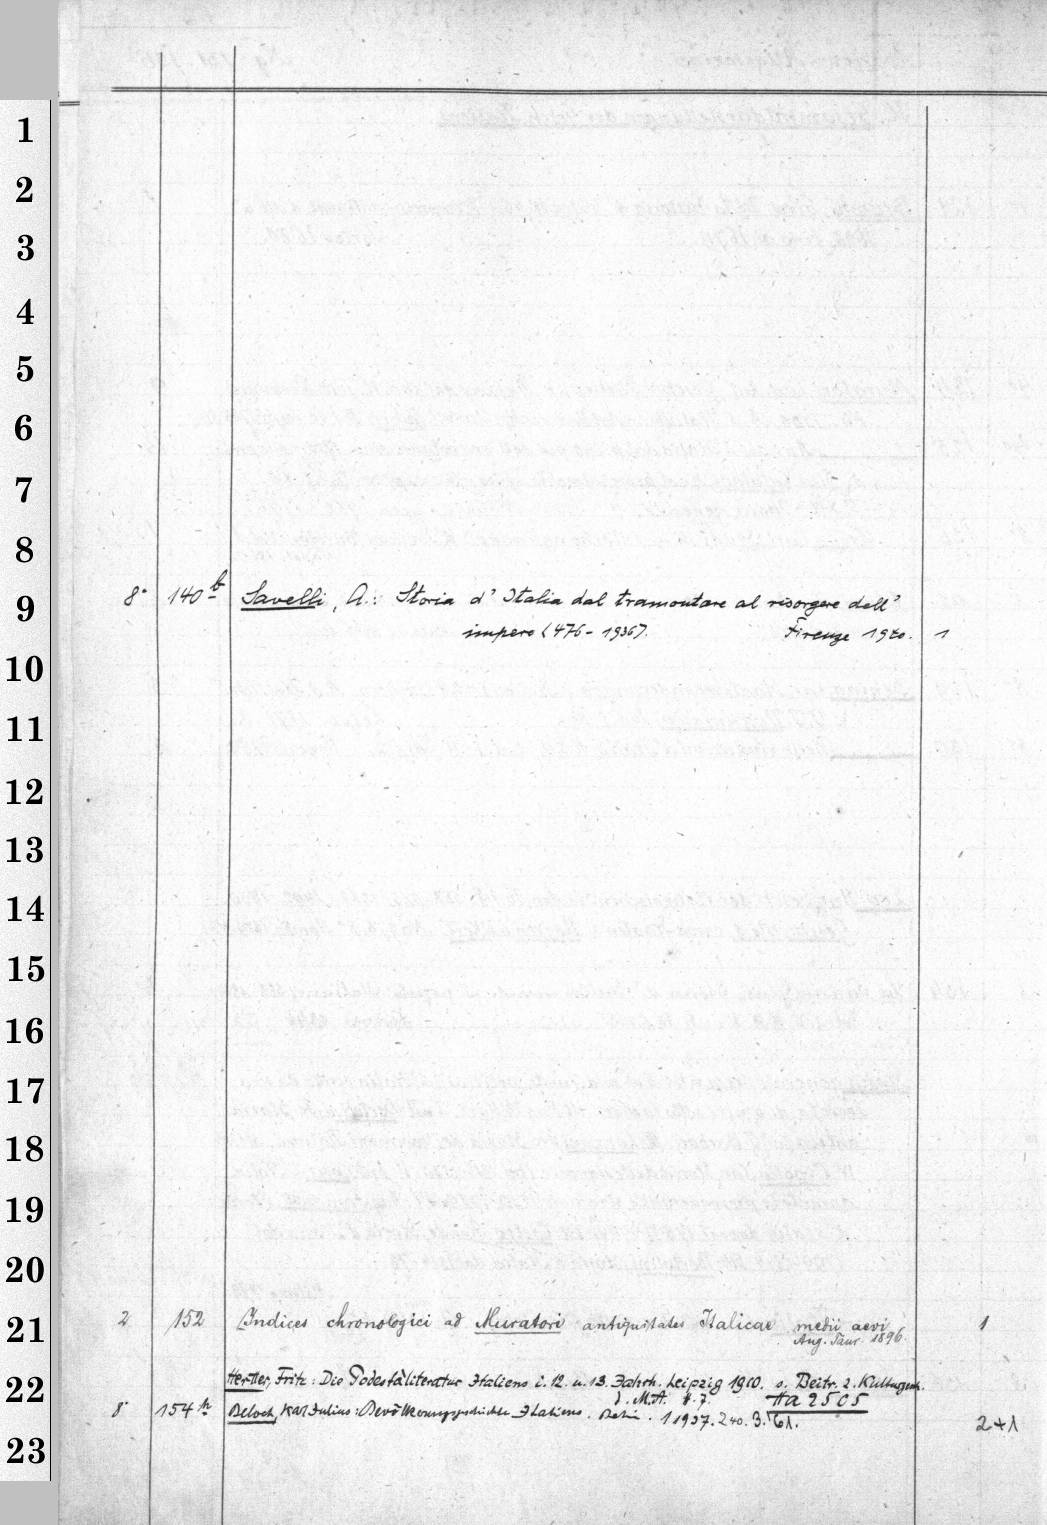 1
2
3
4
5
6
7
8
9
8° 140 b Savelli, A.: Storia d' Italia dal tramontare al risorgere dell'
impero (476 - 1936). Firenze 1 1
10
11
12
13
14
15
16
17
18
19
20
21
2 152 Indices chronologici ad Muratori antiquitates Italicae medii aevi 1
Aug. Taur. 1896.
22
Hertter, Fritz: Die Podestàliteratur Italiens i. 12. u. 13. Jahrh. Leipzig 1910. s. Beitr. z. Kulturgesch.
d. M.A. H. 7. Ha 2505
8° 154 Beloch, Karl Julius: Bevölkerungsgeschichte Italiens. Berlin. 1 1937. 2 40. 3. 61. 2+1
23